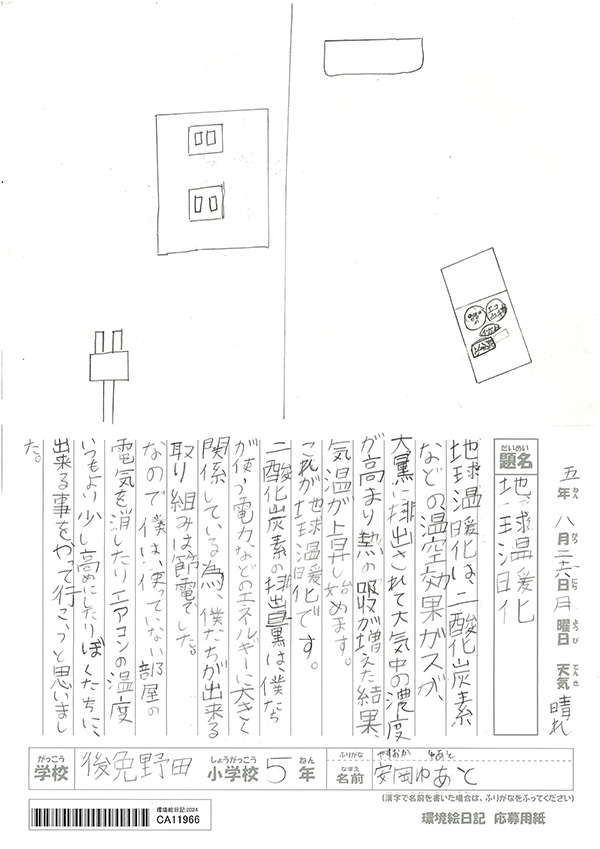 五年 八月二六日 月曜日 天気 晴れ
ねん がつ にち ようび てんき
だいめい
題名
地球温暖化
地球温暖化は、二酸化炭素
などの温空効果ガスが、
大量に排出されて大気中の濃度
が高まり熱の吸収が増えた結果
気温が上昇し始めます。
これが地球温暖化です。
二酸化炭素の排出量は、僕たち
が使う電力などのエネルギーに大きく
関係している為、僕たちが出来る
取り組みは節電でした。
なので僕は、使っていない部屋の
電気を消したりエアコンの温度
いつもより少し高めにしたりぼくたちに、
出来る事をやって行こうと思いまし
た。
がっこう
学校
後免野田
しょうがっこう
小学校
5
ねん
年
ふりがな
やすおか ゆあと
なまえ
名前
安岡ゆあと
(漢字で名前を書いた場合は、ふりがなをふってください)
環境絵日記2024
CA11966
環境絵日記 応募用紙